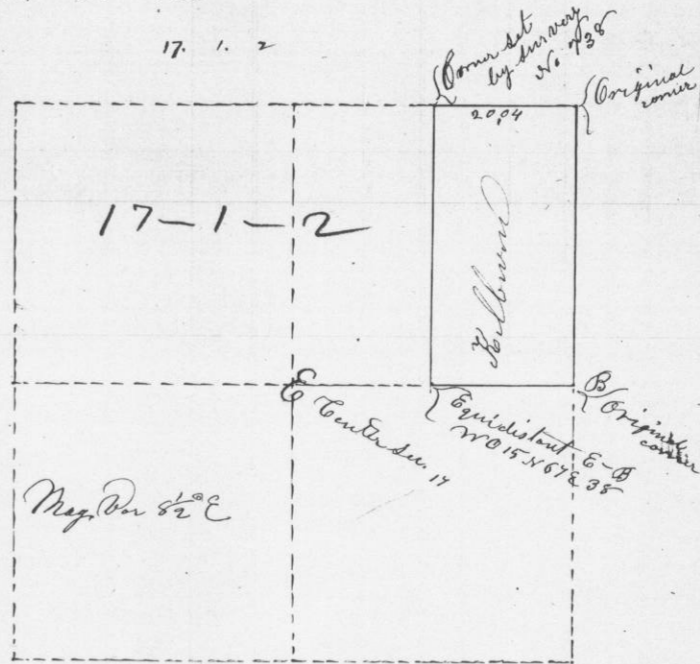 17. 1. 2
Corner set
by survey
No 738
Original
corner
20,04
17-1-2
Kilbourn
E Center Sec. 17
Equidistant E-B
WO 15 N 67 E 38
B Original
corner
Mag. Var 8½° E